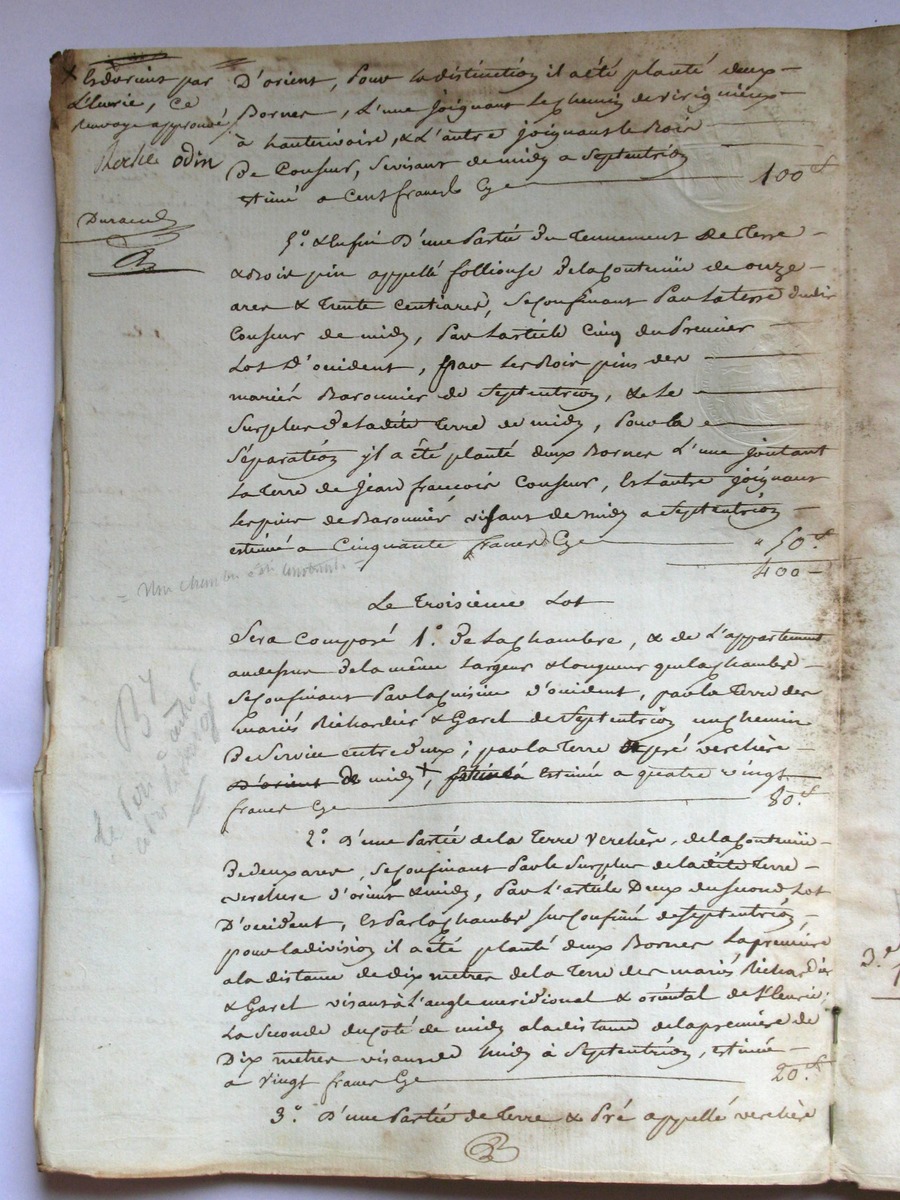 x et d'orient par
L'écurie, ce
renvoye approuvé
odin
Durand
D'orient, pour la distinction il a été planté deux
Bornes, L'une joignant le chemin de virignieux
à hauterivoire, & L'autre joignant le Bois
De Couseur, se visant de midy a Septentrion
estimé a Cent francs Cy 100 f
5.° & Enfin D'une Partie du Tennement de Terre
& Bois pin appellé folliouse de la Contenüe de onze
ares & Trente Centiares, se Confinant Par La terre dudit
Couseur de midy, Par L'article Cinq du Premier
Lot D'occident, par Les Bois pins des
mariés Baronnier de Septentrion, & Le
Surplus de ladite Terre de midy, Pour la
Séparation il a été planté deux Bornes L'une joutant
La Terre de Jean françois Couseur, Et L'autre joignant
Les pins de Baronnier visant de midy a Septentrion
estimé a Cinquante francs Cy " 50 f
400
Le Troisième Lot
Sera Composé 1.° de La Chambre, & de L'appartement
audessus de la même Largeur & Longueur que la Chambre
se Confinant Par La Cuisine d'occident, par la Terre des
mariés Richardier & Garel de Septentrion un chemin
De Service entre deux; par la Terre & pré verchère
D'orient de midy x, Estimée a quatre vingt
francs Cy 80 f
2.° D'une Partie de la Terre verchère, de la Contenüe
De deux ares, se Confinant Par le Surplus de ladite Terre
verchere d'orient & midy, Par L'article Deux du Second Lot
D'occident, Et Par La Chambre Sus Confinée de Septentrion,
pour la division il a été planté deux Bornes La première
a la distance de dix metres de la Terre des mariés Richardier
& Garel visant à L'angle meridional & oriental de L'ecurie;
La Seconde du Coté de midy a la distance de la première de
Dix metres visant de midy à Septentrion, estimée
a Vingt francs Cy 20 f
3.° D'une Partie de Terre & Pré appellé verchère
3.e